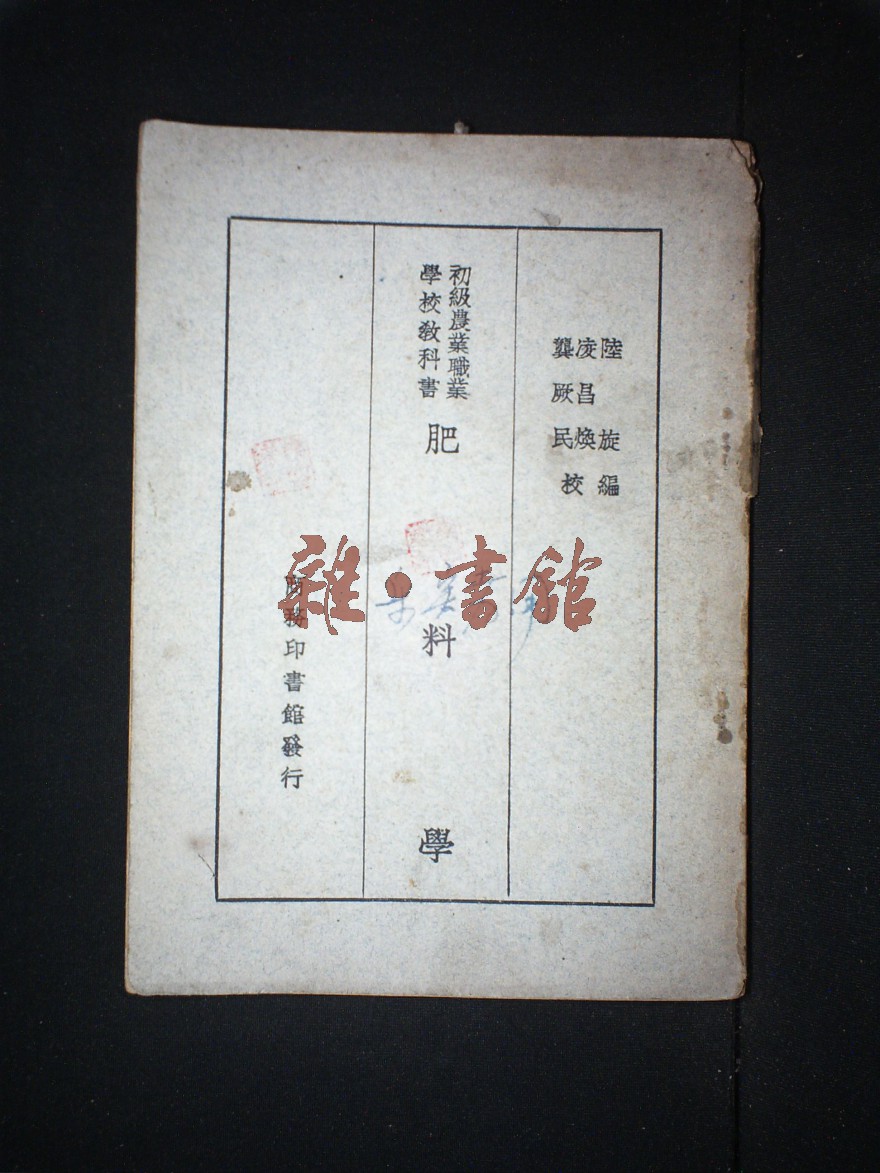 陸旋編
凌昌煥
龔厥民校
初級農業職業
學校教科書
肥料學
商務印書館發行
雜·書館